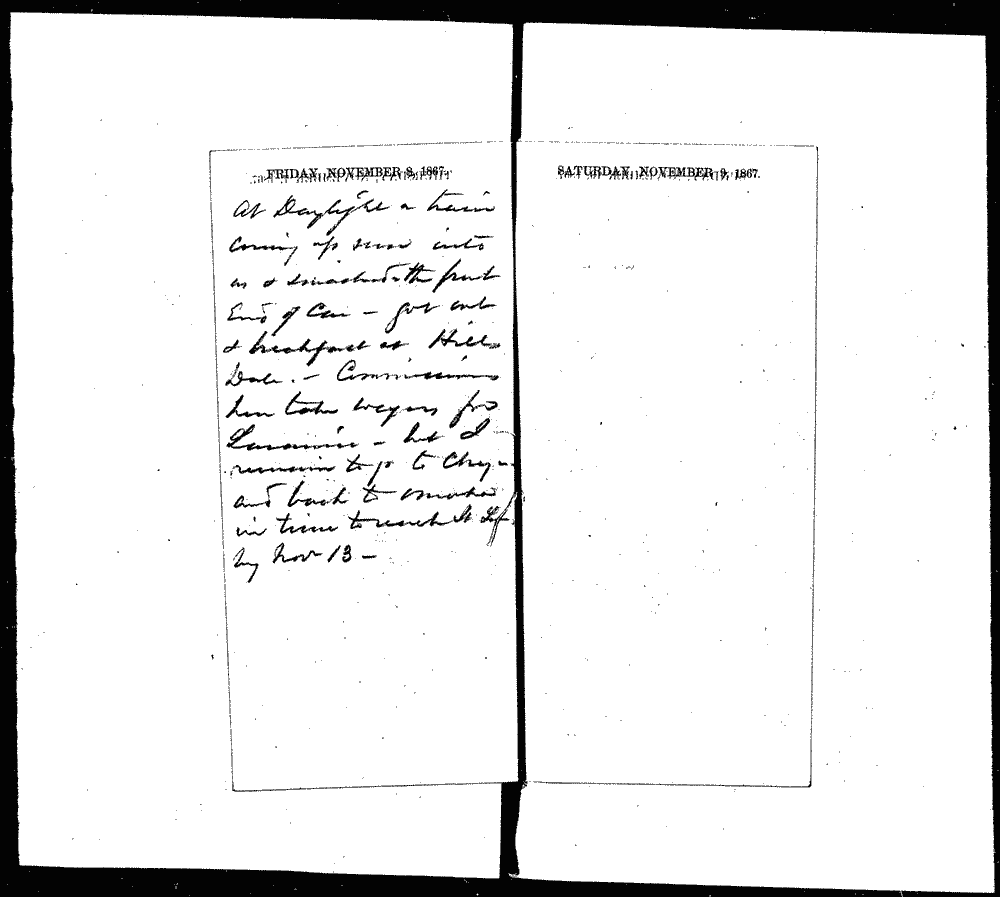 FRIDAY, NOVEMBER 8, 1867.
At Daylight a train
coming up run into
us & smashed the front
End of Car – got out
& breakfast at Hills
Dale. – Commissioners
here take wagons for
Laramie – but I
remain to go to Chey–
and back to Omaha
in time to reach St
by Nov 13 –
SATURDAY, NOVEMBER 9, 1867.